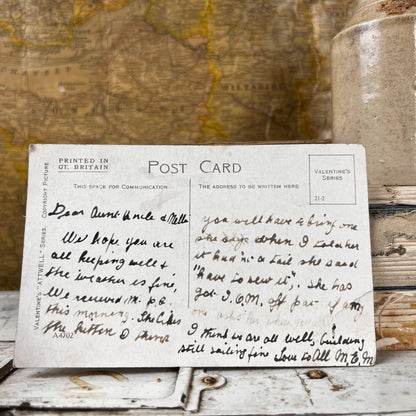 PRINTED IN
GT. BRITAIN
POST CARD
THIS SPACE FOR COMMUNICATION
THE ADDRESS TO BE WRITTEN HERE
VALENTINE'S
SERIES
21-2
VALENTINE'S "ATTWELL" SERIES.
COPYRIGHT PICTURE
A4702
Dear Aunt Uncle &
We hope you are
all keeping well &
the weather is fine,
We received M. P.C.
this morning. The
the kitten I think
you will have to bring one
she says when I told her
it had 'n' a tail she said
"have to sew it". She has
got I.O.M. off pat if any
one asks her where you
I think we are all well, building
still sailing fine Love to All M. E. M